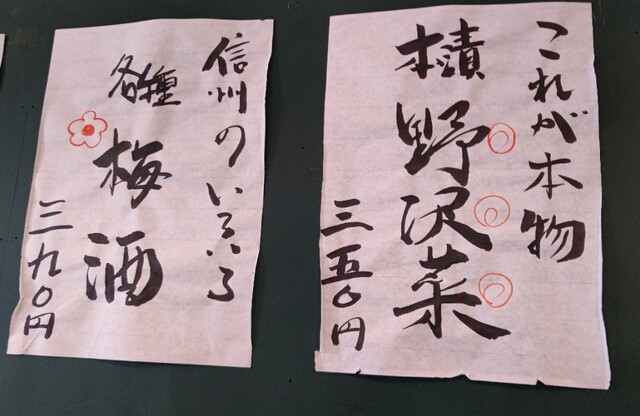 これが本物
本漬
野沢菜
三五〇円
信州のいろいろ
各種
梅酒
三九〇円